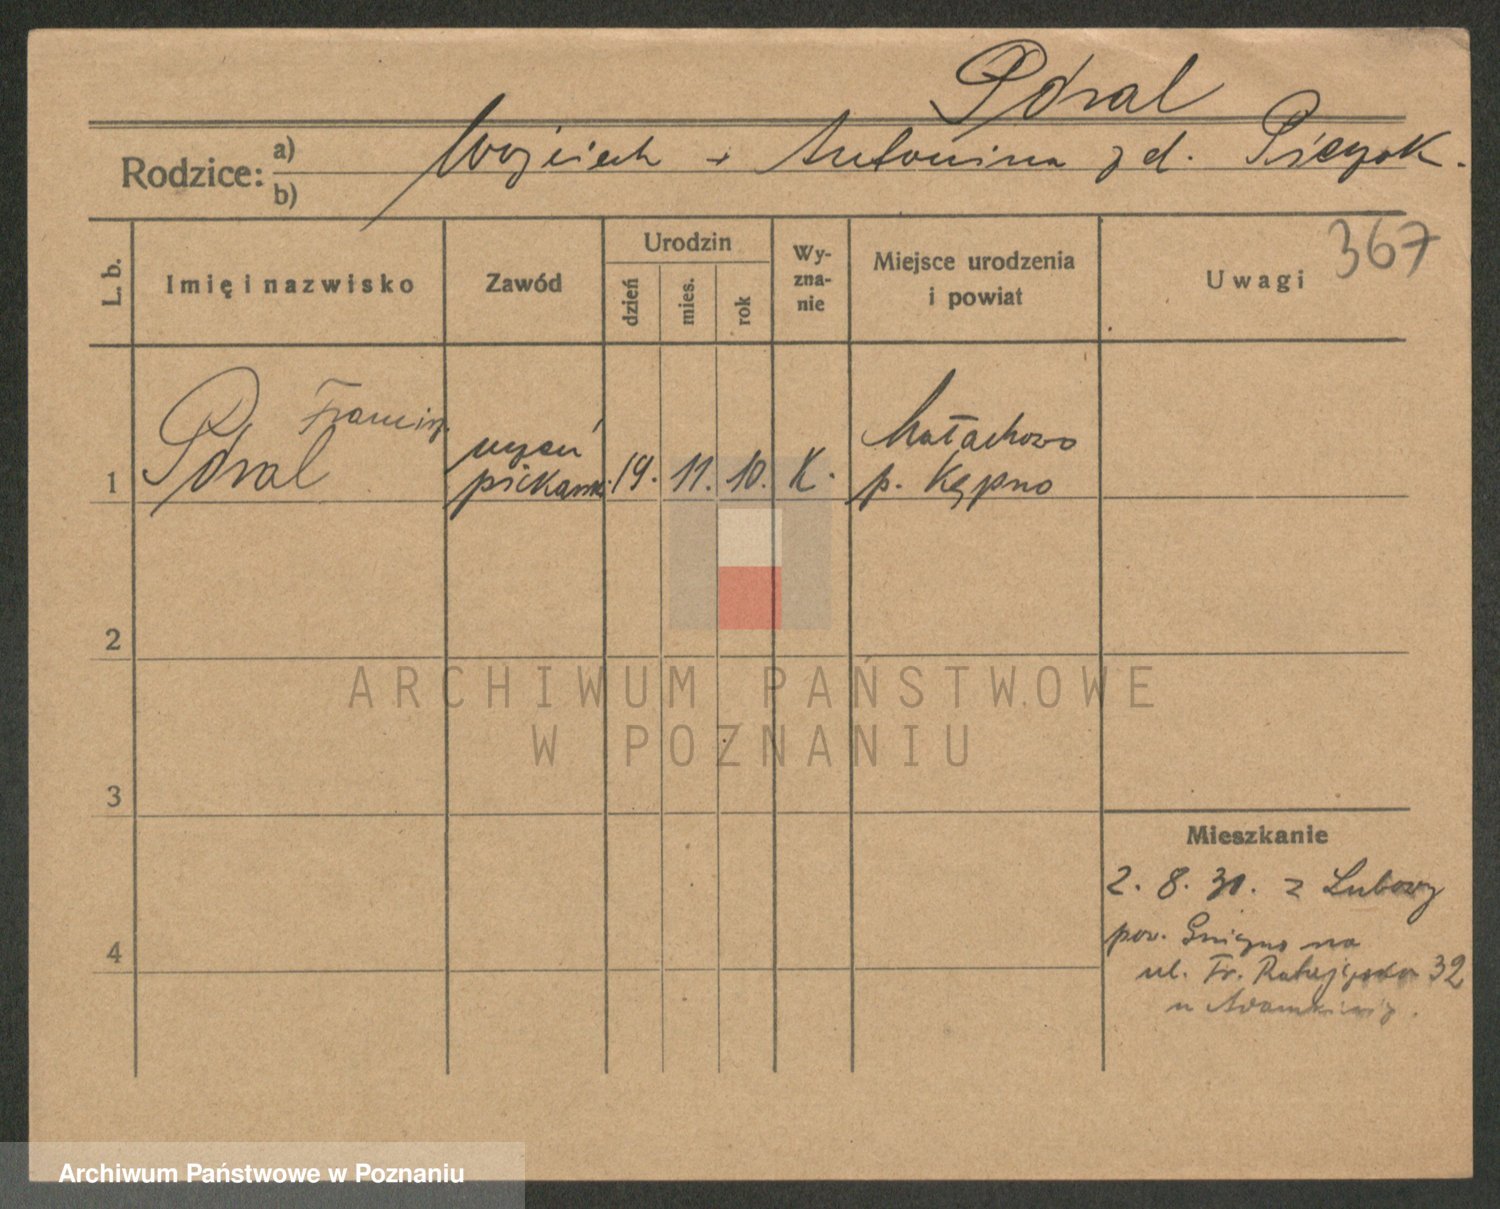 Pdral
Rodzice: a) b)
Wojciech + Antonina zd.
367
L. b.
Imię i nazwisko
Zawód
Urodzin
dzień
mies.
rok
Wy-
zna-
nie
Miejsce urodzenia
i powiat
Uwagi
1
Francisz.
Pdral
uczeń
piekarski
19. 11. 10. K.
Małachowo
p. Kępno
2
3
4
Mieszkanie
2. 8. 30. z Lubowy
pow. Gniezno na
ul. Fr. Ratajczaka 32
u Adamkiewicz.
ARCHIWUM PAŃSTWOWE
W POZNANIU
Archiwum Państwowe w Poznaniu